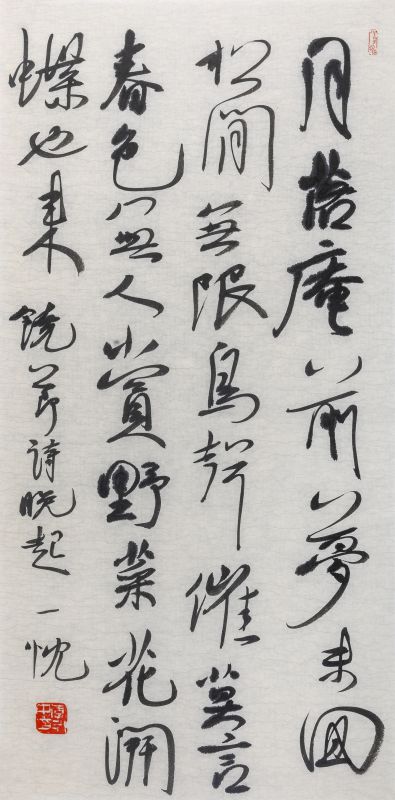 月落庵前夢未回
松間無限鳥聲催莫言
春色無人賞野菜花開
蝶也来 饒節詩晚起 一忱